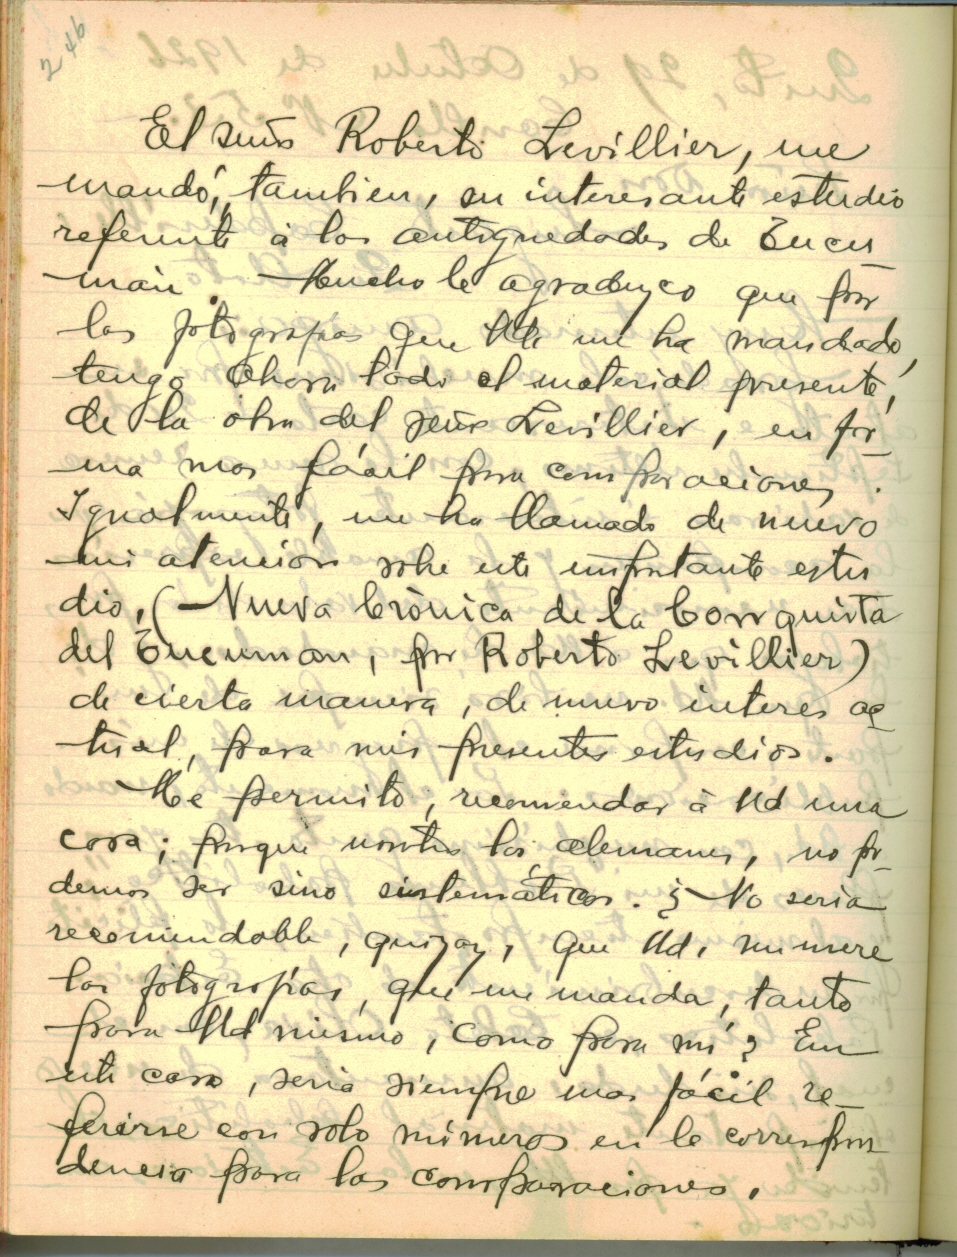 246
El señor Roberto Levillier, me
mandó, tambien, su interesante estudio
referente à las antiguedades de Tucu
mán. Mucho le agradezco que por
las fotografias que Ud. me ha mandado,
tengo ahora todo el material presente,
de la obra del señor Levillier, en for-
ma mas fácil para comparaciones.
Igualmente, me ha llamado de nuevo
mi atención sobre este importante estu
dio, (Nueva Crònica de la Conquista
del Tucuman, por Roberto Levillier)
de cierta manera, de nuevo interes ac
tual, para mis presentes estudios.
Me permito, recomendar à Ud una
cosa; porque nosotros los alemanes, no po-
demos ser sino sistemáticos. ¿No seria
recomendable, quizas, que Ud, numere
las fotografías, que me manda, tanto
para Ud mismo, como para mi? En
este caso, seria siempre mas fácil re-
ferirse con solo números en la correspon
dencia para las comparaciones.